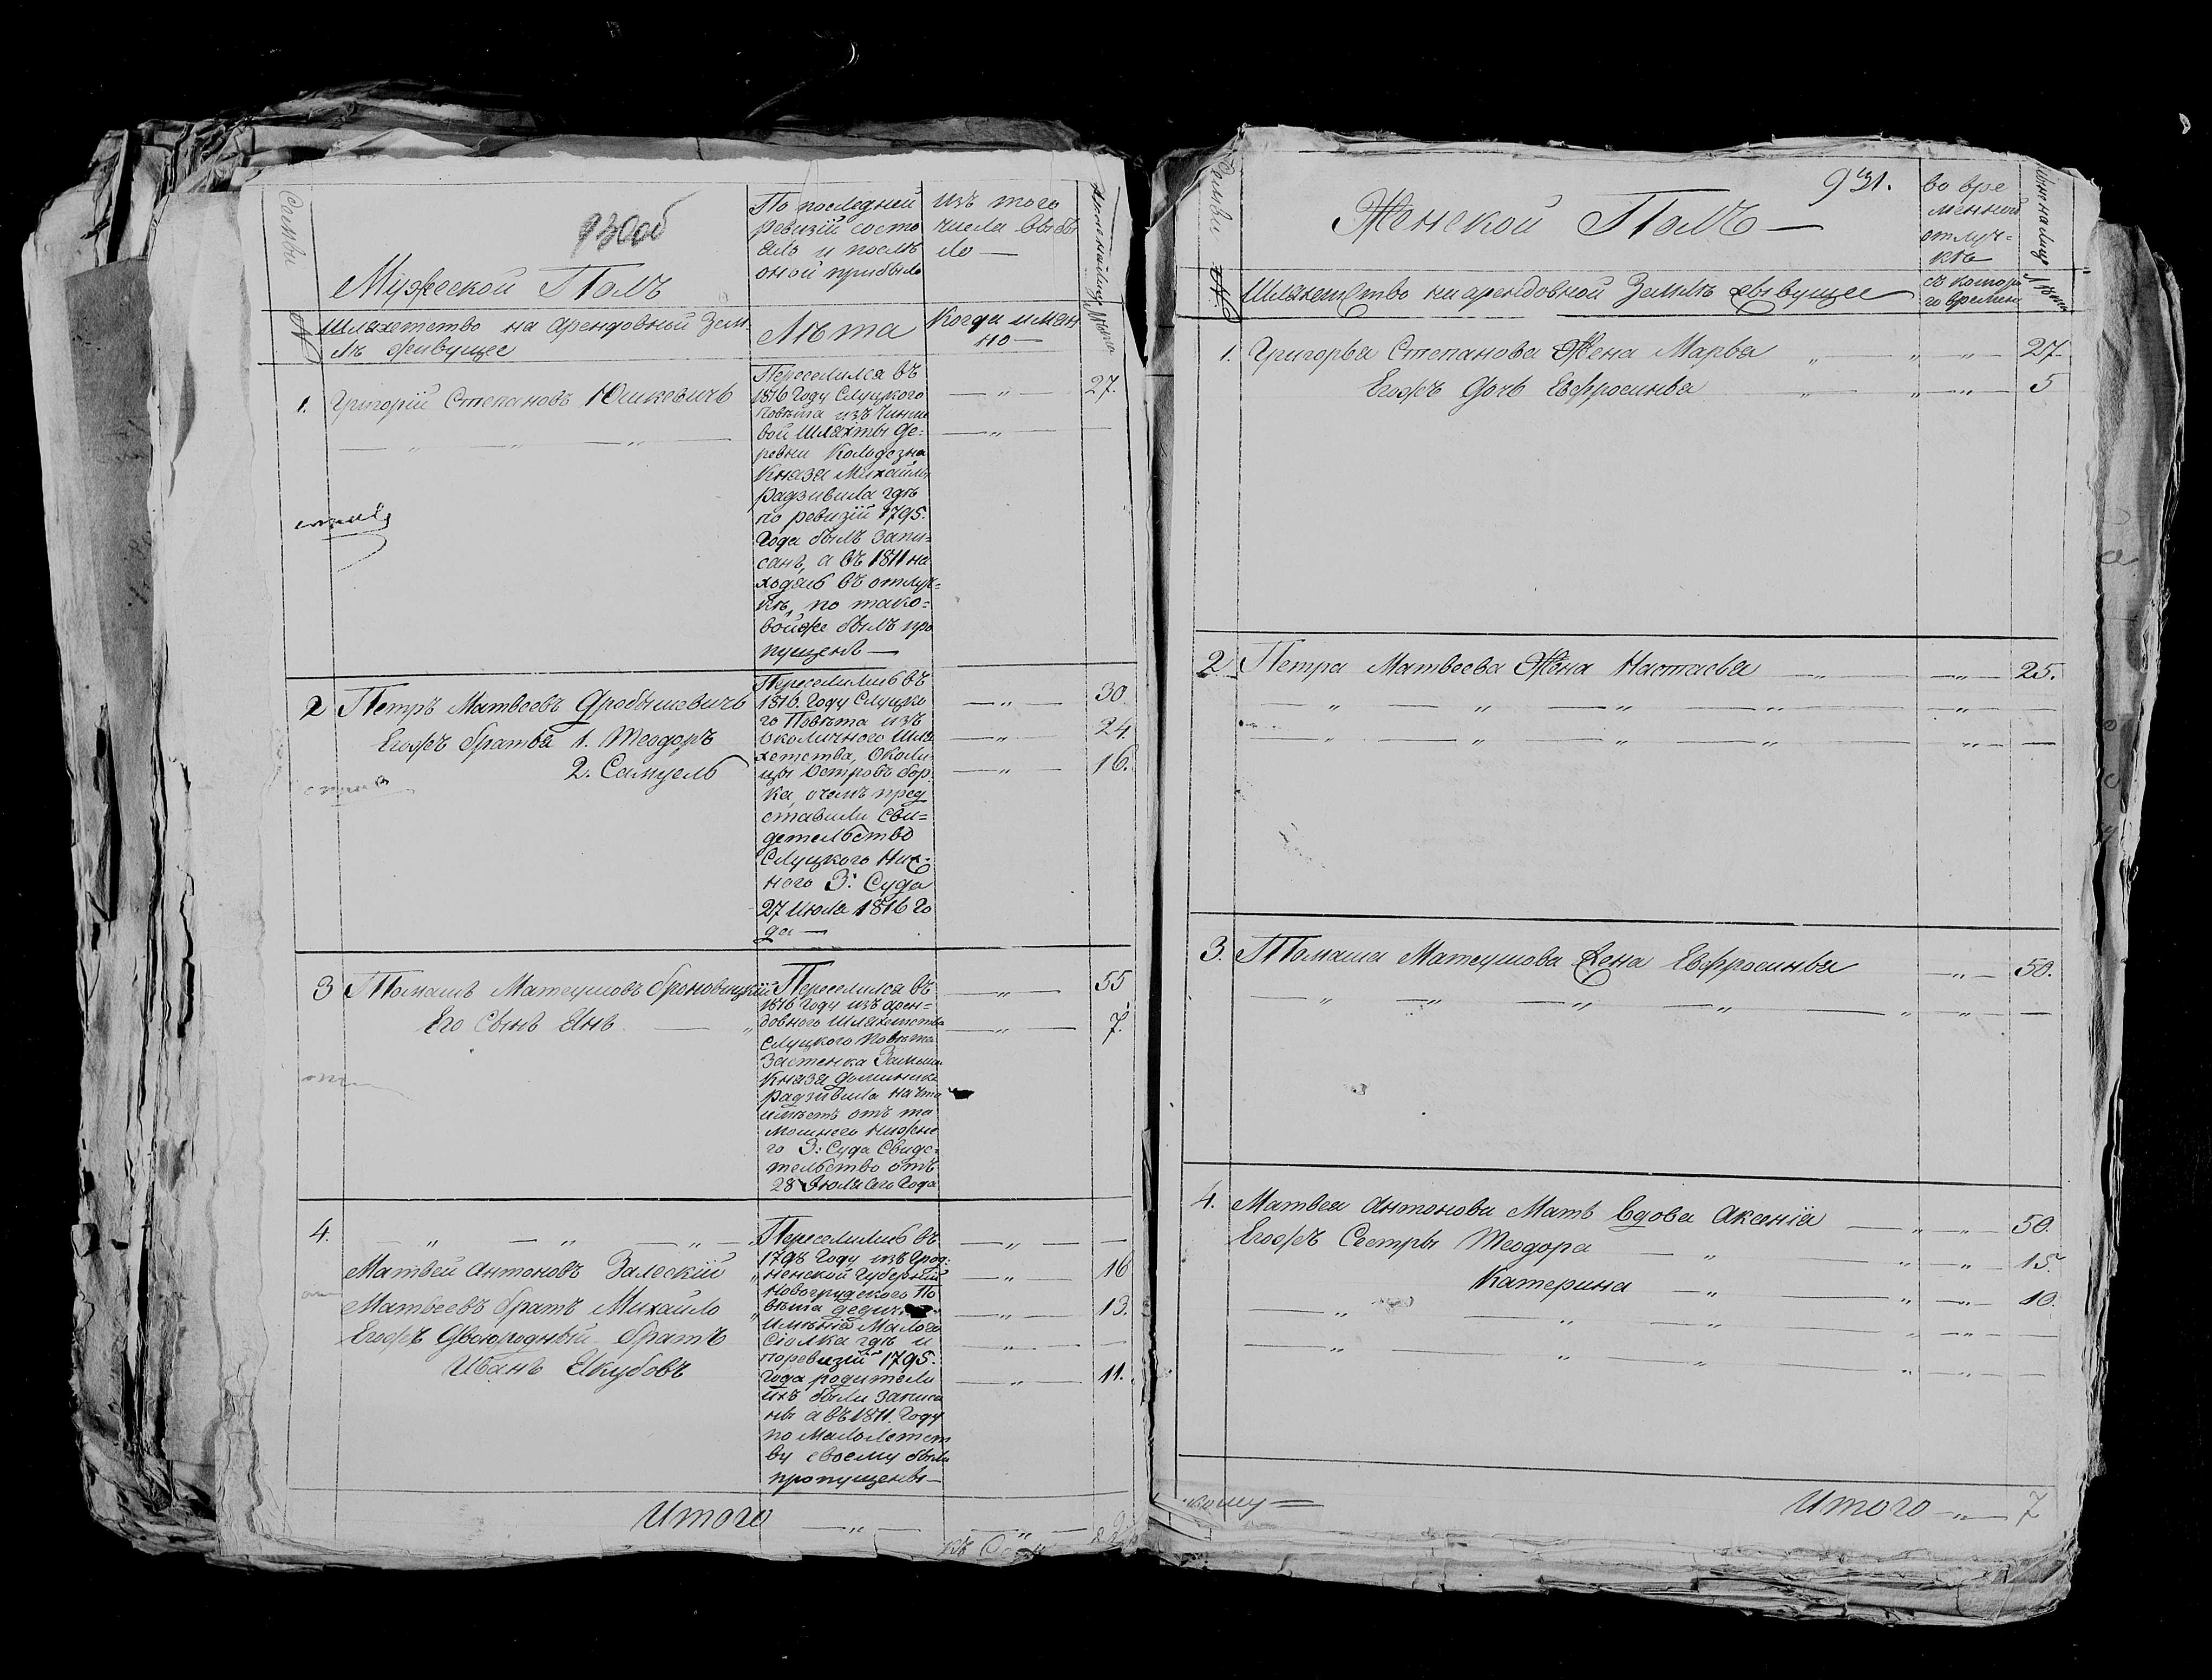 930об
Мужеской Полъ
По последней
ревизіи состо
ялъ и послѣ
оной прибыло
изъ того
числа выбы
ло —
Семьи
№
Шляхетство на арендовной Зем
лѣ живущее
Лѣта
Когда имян
но —
Лѣта
1. Григорій Степановъ Юшкевичь
Переселился въ
1816 Году Слуцкого
повѣта изъ Чинше
вой Шляхты де=
ревни Колодезна
Князя Михайлы
радзивила гдѣ
по ревизіи 1795.
Года былъ запи=
санъ, а въ 1811 на
ходясь въ отлуч=
кѣ, по тако=
войже былъ про
пущенъ —
— „ — 27.
2 Петръ Матвеевъ Дробышевичь
Егожъ братья 1. Теодоръ
2. Самуель
Переселились въ
1816. Году Слуцко
го Повѣта изъ
околичного Шля
хетства, Околи
цы Островъ бор
ка, очемъ пред
ставили Сви=
детельство
Слуцкого Ниж=
него З: Суда
27 Июля 1816 Го
да —
— „ — 30.
— „ — 24.
— „ — 16.
3 Томашъ Матеушовъ броновицкій
Его Сынъ Янъ — „
Переселился въ
1816 Году изъ арен=
довного Шляхетства
Слуцкого повѣта
Застенка
Князя доминика
радзивила на что
имѣетъ отъ та
мошнего Нижне
го З: Суда Свиде=
тельство отъ
28 Июля Сего Года
— „ — 55
— „ — 7.
4. — „ — „ — „ —
Матвей Антоновъ Залескій
Матвеевъ братъ Михайло
Егожъ Двоюродный братъ
Иванъ Якубовъ
Переселились въ
Году изъ Грод:
ненской Губерніи
Новогрудского По
вѣта
имѣнія Малого
Сіолка гдѣ и
поревизіи 1795.
Года родители
ихъ были записа
ны а въ 1811. Году
по малолетст
ву своему были
пропущены —
— „ — —
— „ — 16
— „ — 13.
— „ — —
— „ — 11.
Итого — „ — — „ —
931.
Женской Полъ —
во вре
менной
отлуч=
кѣ
съ котора
го времени
Семьи
№
Шляхетство на арендовной Землѣ живущее
Лѣта
1. Григорья Степанова Жена Марья „ „ „ — 27
Егожъ Дочь Евфросинья „ „ „ — 5
2 Петра Матвеева Жена Настасья — „ — „ — 25.
— „ — „ — „ — „ — „ — —
— „ — „ — „ — „ — „ — —
3. Томаша Матеушова Жена Евфросинья — „ — 50.
— „ — „ — „ — „ — „ — „ — —
4. Матвея Антонова Мать Вдова Аксенія — „ — „ — 50.
Егожъ Сестры Теодора — „ — „ — „ — 15.
Катерина — „ — „ — „ — 10.
— „ — „ — „ — „ — „ — —
— „ — „ — „ — „ — „ — —
Итого — „ — 7